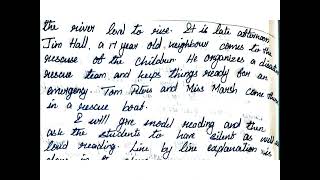 the river level to rise. It is late afternoon.
Jim Hall, a 17 year old neighbour comes to the
rescuse of the children. He organizes a disast
rescue team and keeps things ready for an
emergency. Tom Peters and Miss Marsh come there
in a rescue boat.
I will give model reading and then
ask the students to have silent as well as
loud reading. Line by line explanation is